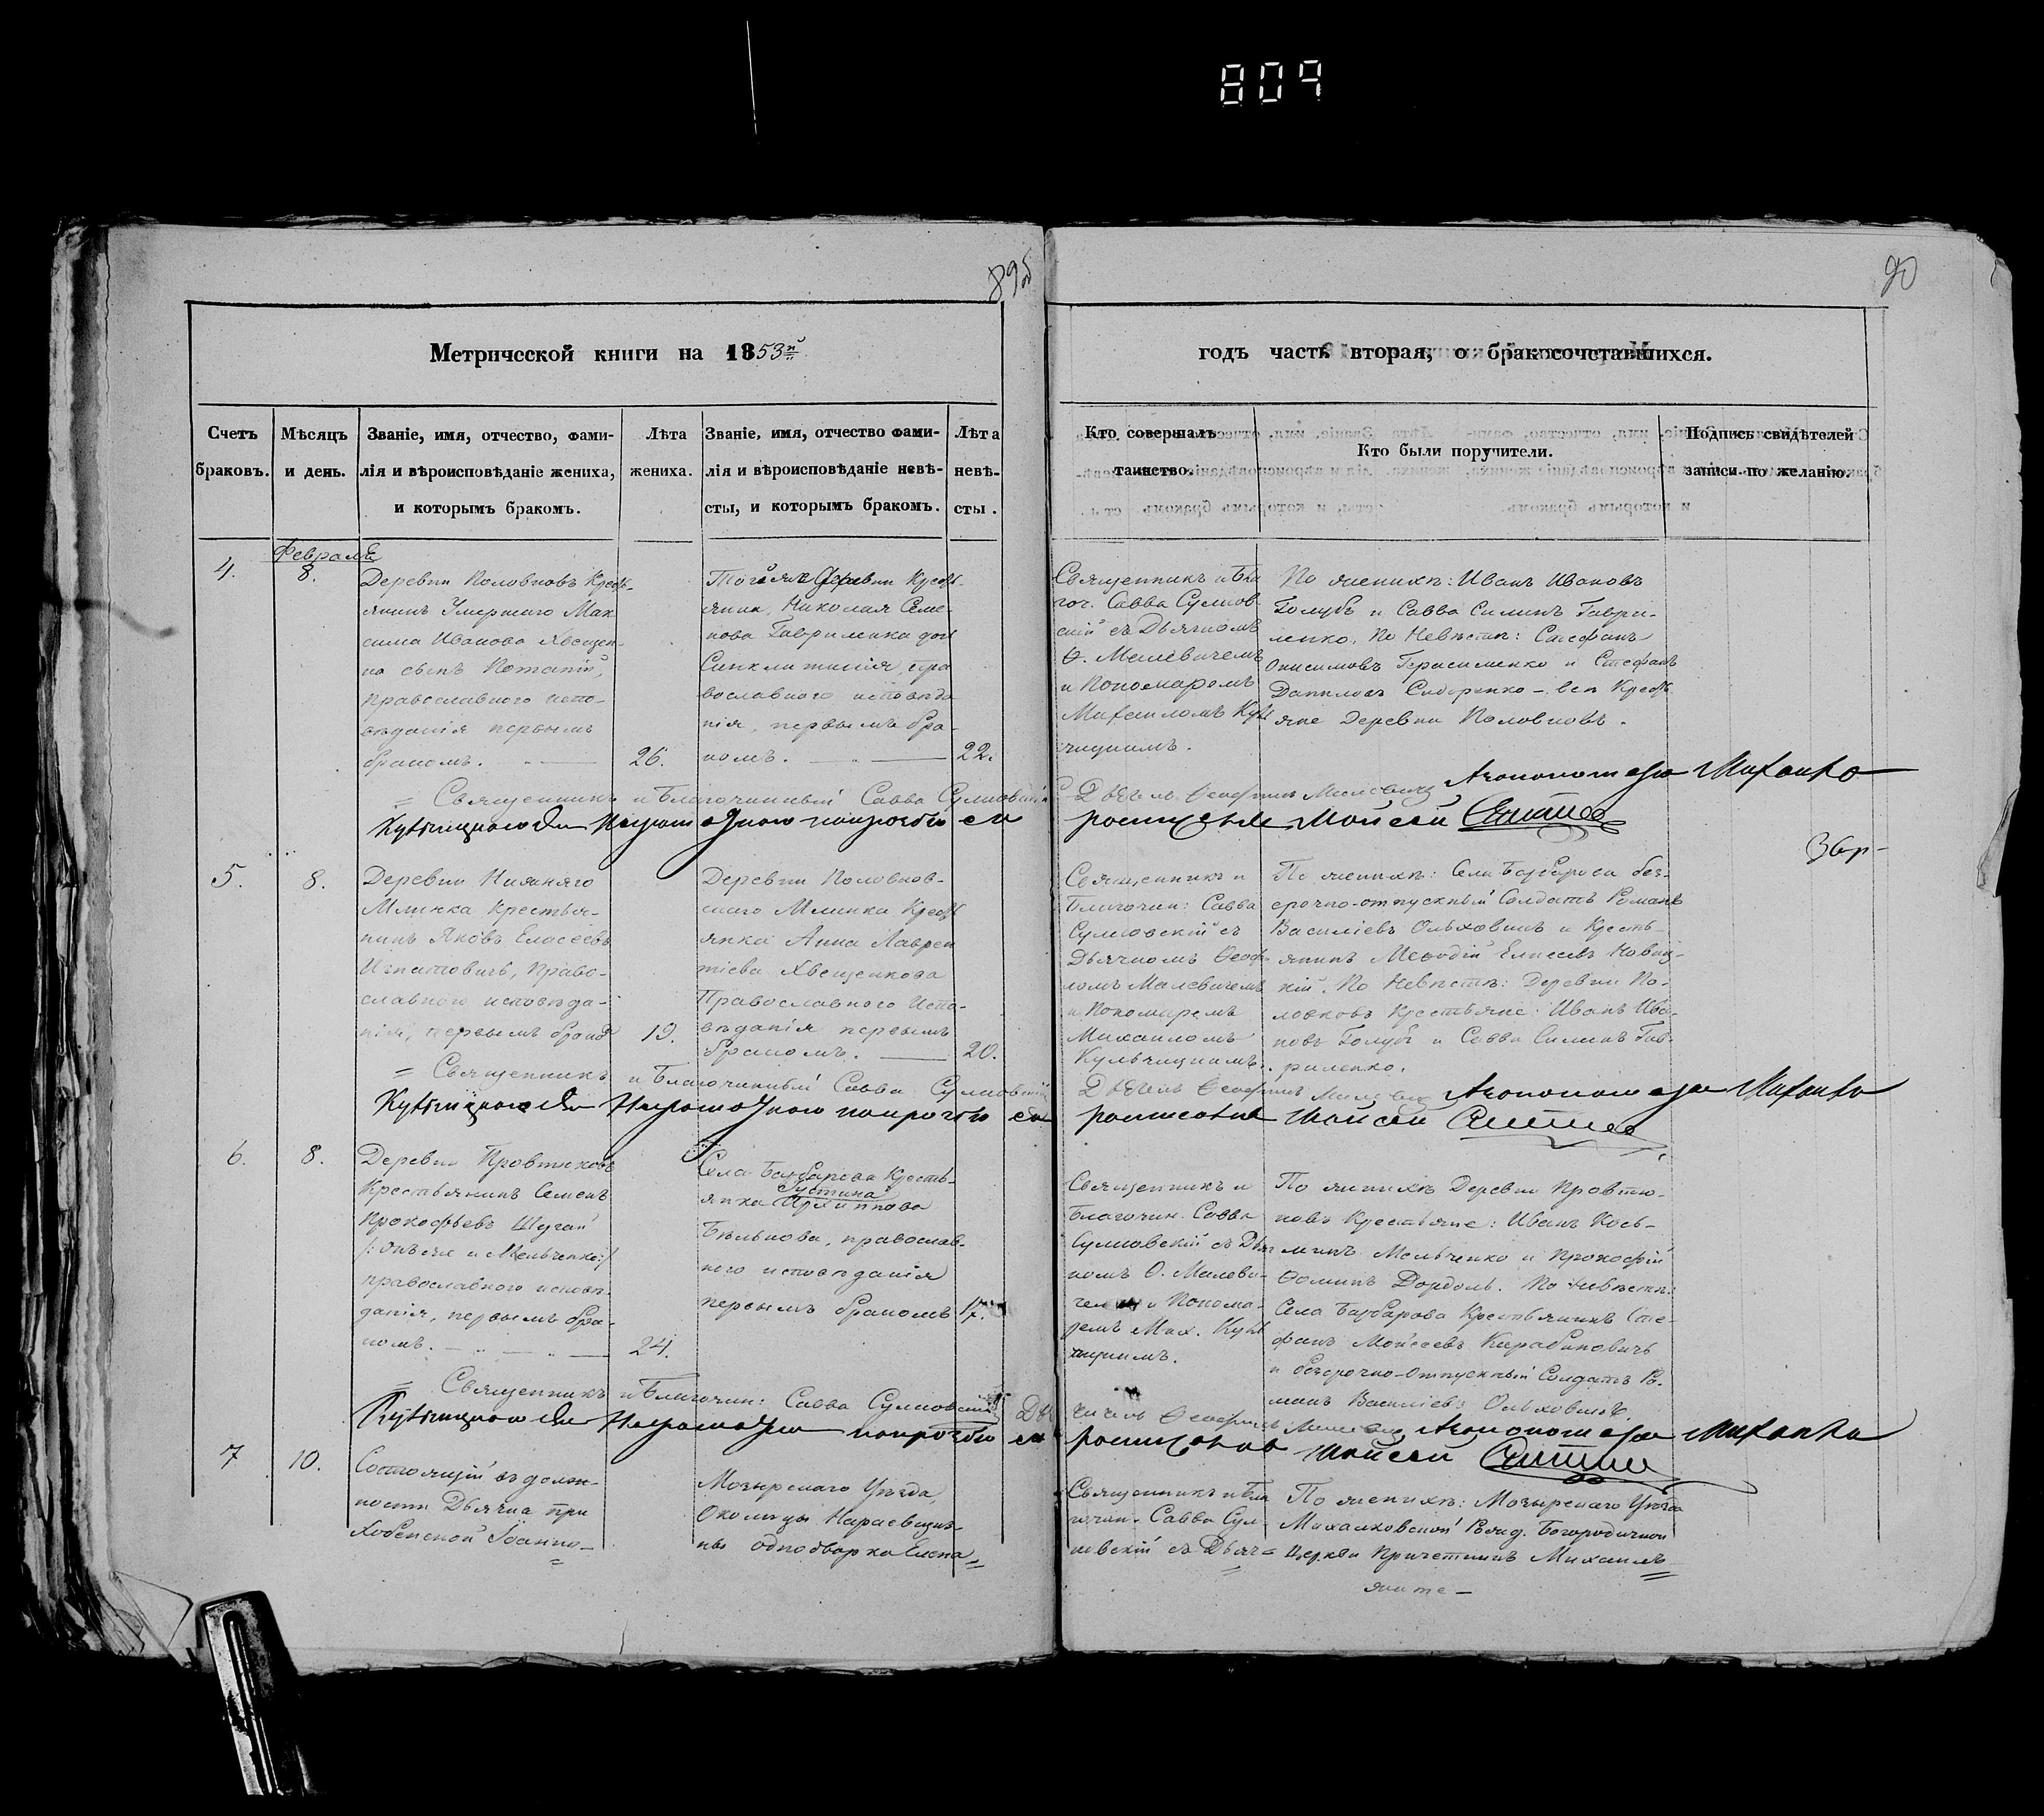 809
89об
90
Метрической книги на 1853й
годъ часть вторая, о бракосочетавшихся.
Счетъ браковъ.
Мѣсяцъ и день.
Званіе, имя, отчество, фами-
лія и вѣроисповѣданіе жениха,
и которымъ бракомъ.
Лѣта жениха.
Званіе, имя, отчество фами-
лія и вѣроисповѣданіе невѣ-
сты, и которымъ бракомъ.
Лѣта невѣ-
сты.
Кто совершалъ
таинство.
Кто были поручители.
Подпись свидѣтелей
записи по желанію.
Февраль
4.
8.
Деревни Половковъ Кресть-
янинъ Умершаго Мак
сима Иванова Хвещен
ка сынъ Потапій,
православного испо-
вѣданія первымъ
бракомъ.
26.
Тойже Деревни Кресть-
янка, Николая Семе-
нова Гавриленка дочь
Синклитикія, пра
вославного исповѣда
нія, первымъ бра-
комъ.
22.
Священникъ и Бла
гоч. Савва Сулков-
скій съ Дьячкомъ
Ѳ. Малевичемъ
и Пономаромъ
Михаиломъ Куль
чицкимъ.
По женихѣ: Иванъ Ивановъ
Голубъ и Савва Силинъ Гаври-
ленко. По Невѣстѣ: Стефанъ
Онисимовъ Герасименко и Стефанъ
Даниловъ Сидоренко – всѣ Кресть
яне Деревни Половковъ.
Священникъ и Благочинный Савва Сулковскій
5.
8.
Деревни Нижняго
Млинка Крестья-
нинъ Яковъ Елисеевъ
Игнатовичъ, Право-
славного исповѣда-
нія, первымъ брако
19.
Деревни Половков-
скаго Млинка Кресть
янка Анна Лаврен
тіева Хвещенкова
Православного Испо-
вѣданія первымъ
бракомъ.
20.
Священникъ и
Благочин: Савва
Сулковскій съ
Дьячкомъ Ѳеофи
ломъ Малевичемъ
и Пономаремъ
Михаиломъ
Кульчицкимъ.
По женихѣ: Села Барбарова без-
срочно-отпускный Солдатъ Романъ
Василіевъ Ольховикъ и Кресть-
янинъ Меѳодій Елисеевъ Новиц-
кій. По Невѣстѣ: Деревни По-
ловковъ Крестьяне: Иванъ Ива-
новъ Голубъ и Савва Силинъ Гав-
риленко.
Священникъ и Благочинный Савва Сулковскій
6.
8.
Деревни Провтюковъ
Крестьянинъ Семенъ
Прокофьевъ Шугай
/: онъ же и Мельченко:/
православного исповѣ
данія, первымъ бра-
комъ.
24.
Села Барбарова Кресть-
Устина
янка Архиппова
Бѣлькова, православ-
ного исповѣданія
первымъ бракомъ
17.
Священникъ и
Благочин. Савва
Сулковскій съ Дьяч
комъ Ѳ. Малеви-
чемъ и Понома-
ремъ Мих. Куль
чицкимъ.
По женихѣ Деревни Провтю-
ковъ Крестьяне: Иванъ Козь-
минъ Мельченко и Прокофій
Ѳоминъ Дордоль. По Невѣстѣ:
Села Барбарова Крестьянинъ Сте-
фанъ Мойсеевъ Карабиновичъ
и безсрочно-отпускный Солдатъ Ро-
манъ Василіевъ Ольховикъ.
Священникъ и Благочин: Савва Сулковскій
7
10.
Состоящій въ долж-
ности Дьячка при
Хобенской Іоанно-
Мозырскаго Уѣзда,
Околицы Нараевщиз-
ны однодворка Елена
Священникъ и Бла
гочин. Савва Сул-
ковскій съ Дьяч=
По женихѣ: Мозырскаго Уѣзда
Михалковской Рожд. Богородичной
Церкви Причетникъ Михаилъ